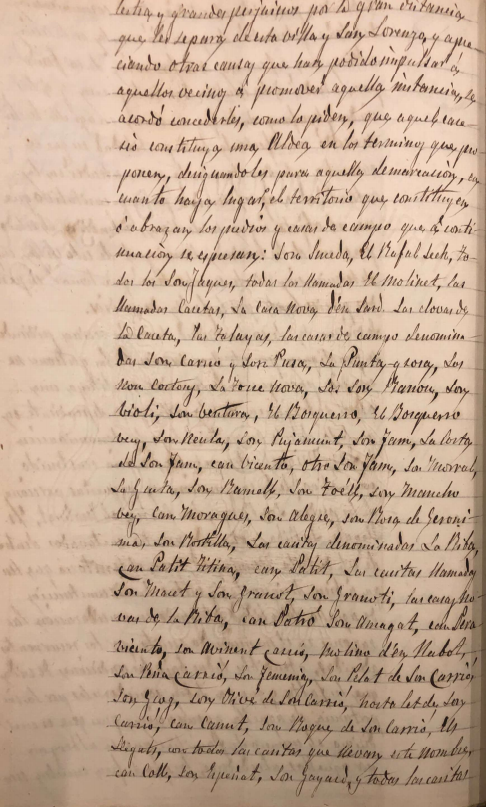 y grandes perjuicios por la gran distancia
que les separa de esta villa y San Lorenzo, y apre-
ciando otras causas que han podido impulsar á
aquellos vecinos á promover aquella instancia, se
acordó concederles, como lo piden, que aquel case-
rio constituya una Aldea en los terminos que pro-
ponen, designandoles para aquella demarcación, en
cuanto haya lugar, el territorio que constituyen
ó abrazan los predios y casas de campo que á conti-
nuación se espresan: Son Sureda, El Rafal Sech, to-
dos los Son Jaques, todas las llamadas El Molinet, las
llamadas Casetas, La Casa Nova d'en Sard. Las
la Caseta, Las Talayas, las casas de campo denomina-
das Son Carrió y Son Pusa, La Punta-grosa, Los
La Torre Nova, Los Son Manou, Son
Violi, Son Ventura, El Bosquerro, El Bosquerro
vey, Son Son Pujamunt, Son Jam, La Costa
de Son Jam, can Vicenta, otro Son Jam, La Morval,
La Gruta, Son Ramell, Son Son Mancho
vey, Can Moragues, Son Alegre, Son Rosa de Geroni-
ma, Son Las casitas denominadas La Riba,
Can Patit Titina, can Patit, Las casitas llamadas
Son Macet y Son Granot, Son Granoti, las casas No-
vas de la Riba, can Son Amagat, can Pera
vicente, Son avinent molino d'en Nabot,
Son Peña Carrió, Son Son Pelat de Son Carrió,
Son Son Olivé de Son Carrió, de Son
Carrió, can Canut, Son Roque de Son Carrió, Els
con todas las casitas que llevan este nombre,
can Coll, Son Son y todas las casitas